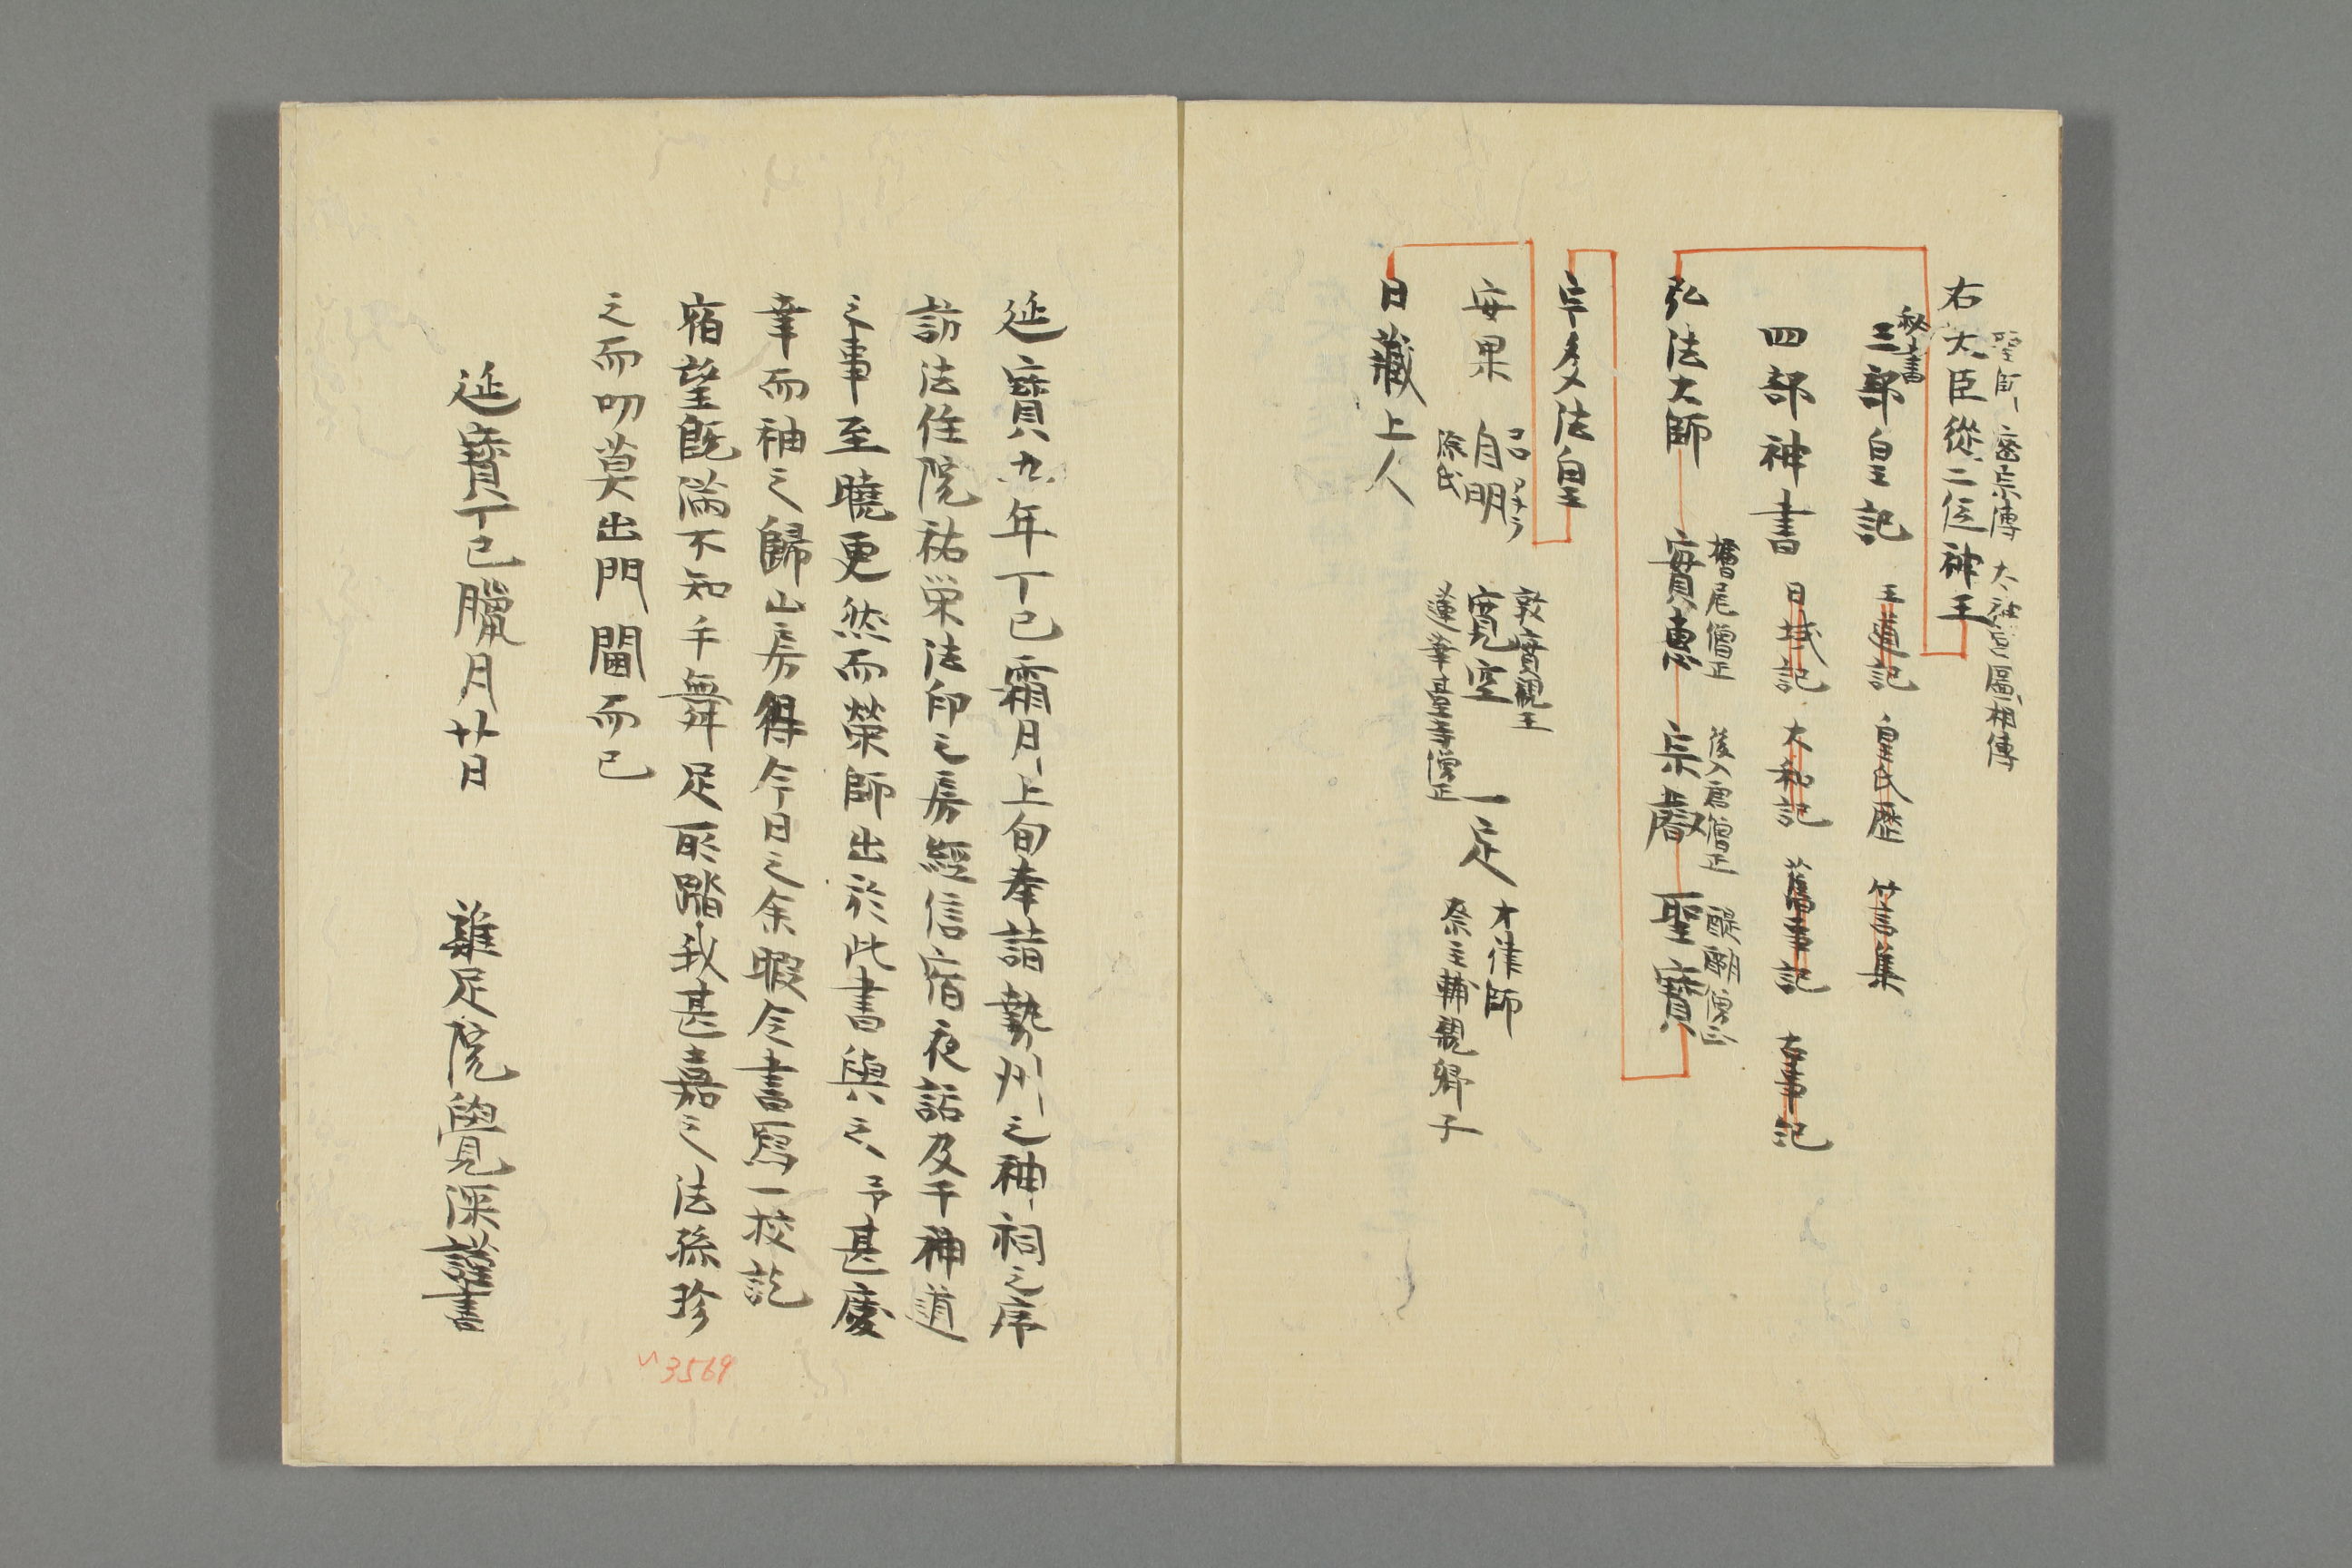 聖師 密宗傳 太祖 相傳
右大臣從二位神王
秘書
三部皇記 王道記 皇氏歷 竹言集
四部神書 日域記 大和記 舊事記 古事記
檜尾僧正 後入唐僧正 醍醐僧正
弘法大師 實惠 宗叡 聖寶
宇多法皇
敦實親王 才律師
安果 自明 寬空 一定
源氏 蓮華臺寺僧正 祭主輔親鄉子
日藏上人
延寶九年丁巳霜月上旬奉詣勢州之神祠之序
訪法住院祐栄法印之房經信宿夜話及于神道
之事至曉更然而榮師出於此書與之予甚慶
幸而袖之歸山房得今日之余暇令書寫一校訖
宿望既滿不知手舞足所踏我甚嘉之法孫珍
之而叨莫出門閫而已
延寶丁巳臘月廿日 雞足院覺深謹書
3569